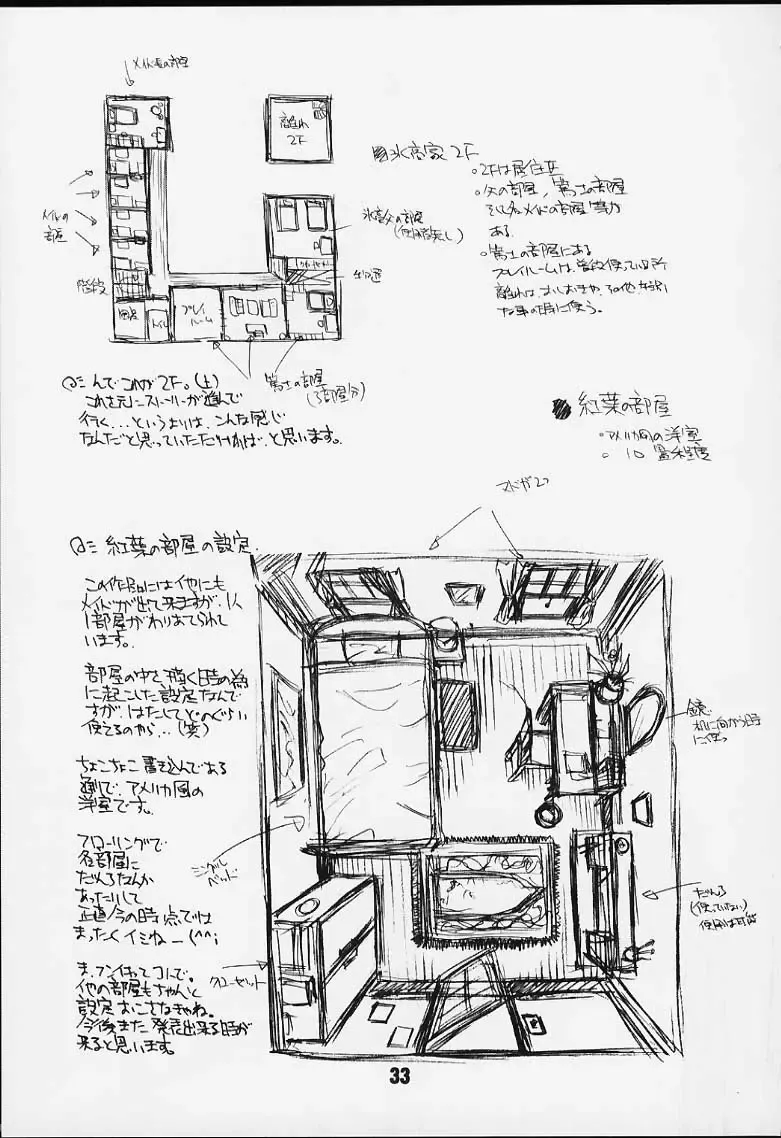 メイド長の部屋
離れ
2F
メイドの
部屋
階段
トイレ
プレイ
ルーム
氷高父の部屋
(使用者無し)
2F
・2Fは居住区
・父の部屋、篤士の部屋
そして各メイドの部屋等が
ある。
・篤士の部屋にある
プレイルームは普段使っている所
離れは、おしおきや、その他、特別
な事の時に使う。
篤士の部屋
(3部屋分)
んでこれが2F。(上)
これを元にストーリーが進んで
行く...というよりは、こんな感じ
なんだと思っていただければ、と思います。
紅葉の部屋
・アメリカ風の洋室
・10畳程度
マドが2つ
紅葉の部屋の設定。
この作品には他にも
メイドが出て来ますが、1人
1部屋がわりあてられて
います。
部屋の中を描く時の為
に起こした設定なんで
すが、はたしてどのぐらい
使えるのやら...(笑)
ちょこちょこ書き込んである
通りで、アメリカ風の
洋室です。
フローリングで
各部屋に
だんろなんか
あったりして
正直今の時点では
まったくイミねー(^^;
ま、フンイキってコトで。
他の部屋もちゃんと
設定おこさなきゃね。
今後また発表出来る時が
来ると思います。
鏡。
机に向かう時
に使う
シングル
ベッド
だんろ
(使っていない)
使用は可能
クローゼット
33